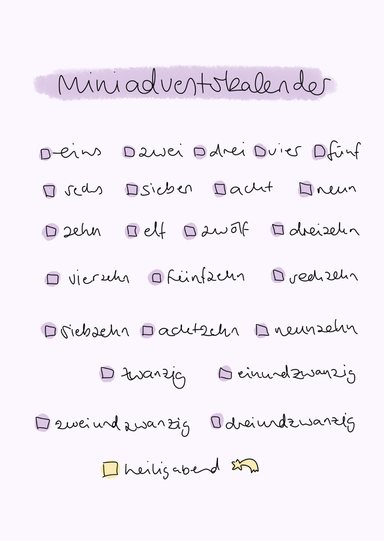 Miniadventskalender
eins zwei drei vier fünf
sechs sieben acht neun
zehn elf zwölf dreizehn
vierzehn fünfzehn sechzehn
siebzehn achtzehn neunzehn
zwanzig einundzwanzig
zweiundzwanzig dreiundzwanzig
heiligabend